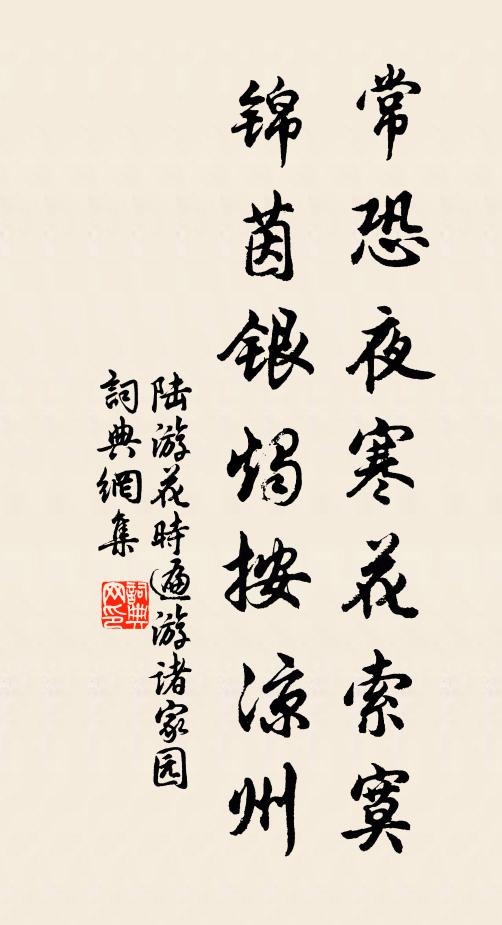 常恐夜寒花索寞
锦茵银烛按凉州
陆游花時遍游诸家园
詞典網集
詞典
网印